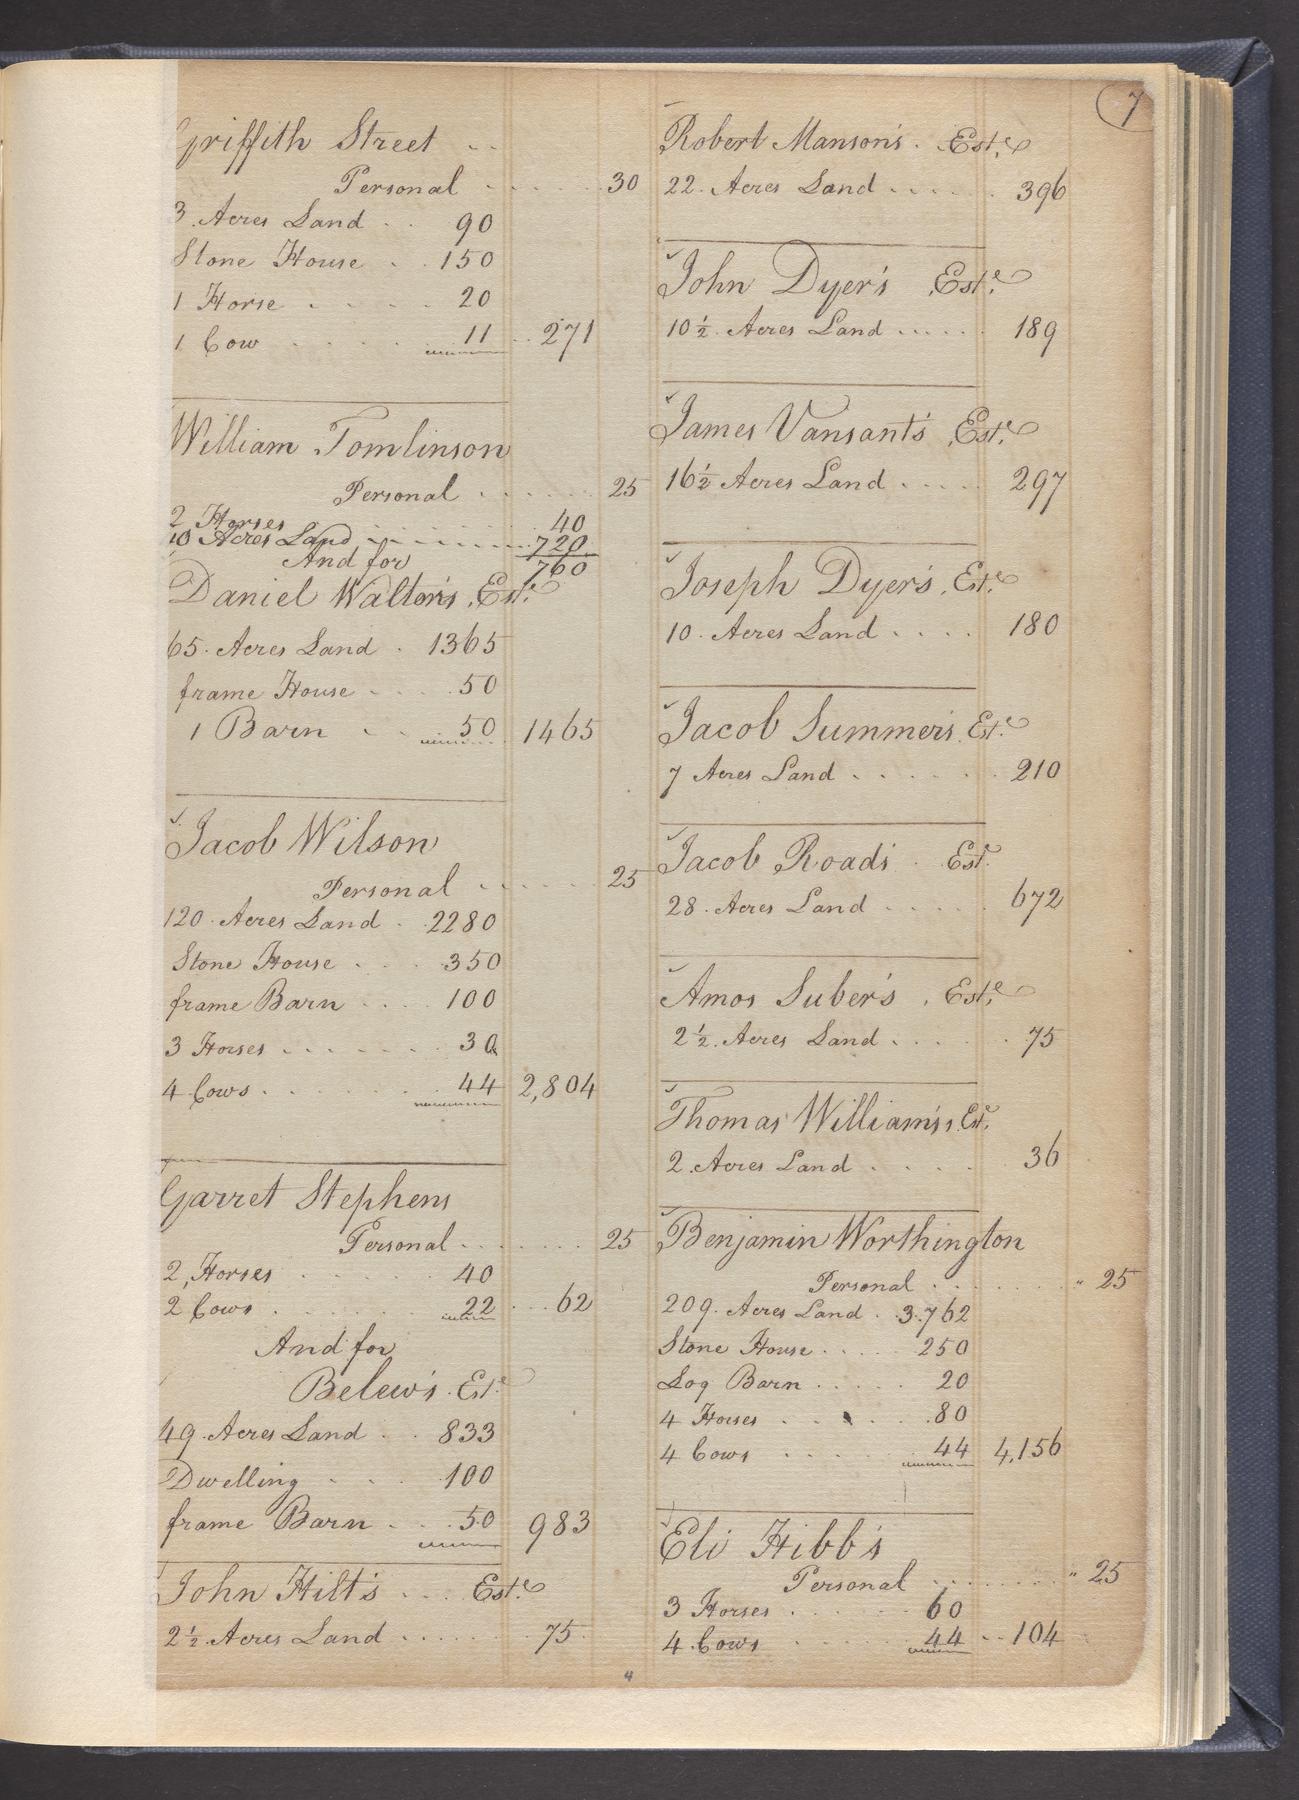 7
Griffith Street
Personal 30
3 Acres Land 90
Stone House 150
1 Horse 20
1 Cow 11 271
William Tomlinson
Personal 25
2 Horses 40
Acres Land 720
And for 760
Daniel Walton's Est.e
65 Acres Land 1365
frame House 50
1 Barn 50 1465
Jacob Wilson
Personal 25
120 Acres Land 2280
Stone House 350
frame Barn 100
3 Horses 30
4 Cows 44 2,804
Garret Stephens
Personal 25
2 Horses 40
2 Cows 22 62
And for
Belew's Est.e
49 Acres Land 833
Dwelling 100
frame Barn 50 983
John Hilt's Est.e
2 1/2 Acres Land 75
4
Robert Manson's Est.e
22 Acres Land 396
John Dyer's Est.e
10 1/2 Acres Land 189
James Vansant's Est.e
16 1/2 Acres Land 297
Joseph Dyer's Est.e
10 Acres Land 180
Jacob Summer's Est.e
7 Acres Land 210
Jacob Roads Est.e
28 Acres Land 672
Amos Suber's Est.e
2 1/2 Acres Land 75
Thomas William's Est.e
2 Acres Land 36
Benjamin Worthington
Personal " 25
209 Acres Land 3.762
Stone House 250
Log Barn 20
4 Horses 80
4 Cows 44 4,156
Eli Hibb's
Personal " 25
3 Horses 60
4 Cows 44 104